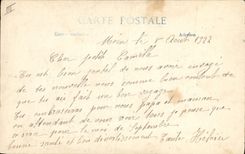 CARTE POSTALE
le 5 Août 1922
Cher petit Camille
Tu es bien gentil de nous avoir envoyé
de tes nouvelles nous sommes bien content de
que tu as fait un bon voyage
Tu embrasseras pour nous papa et maman
en attendant de vous voir tous je pense que
pour le mois de Septembre
bonne santé et bon divertissement.